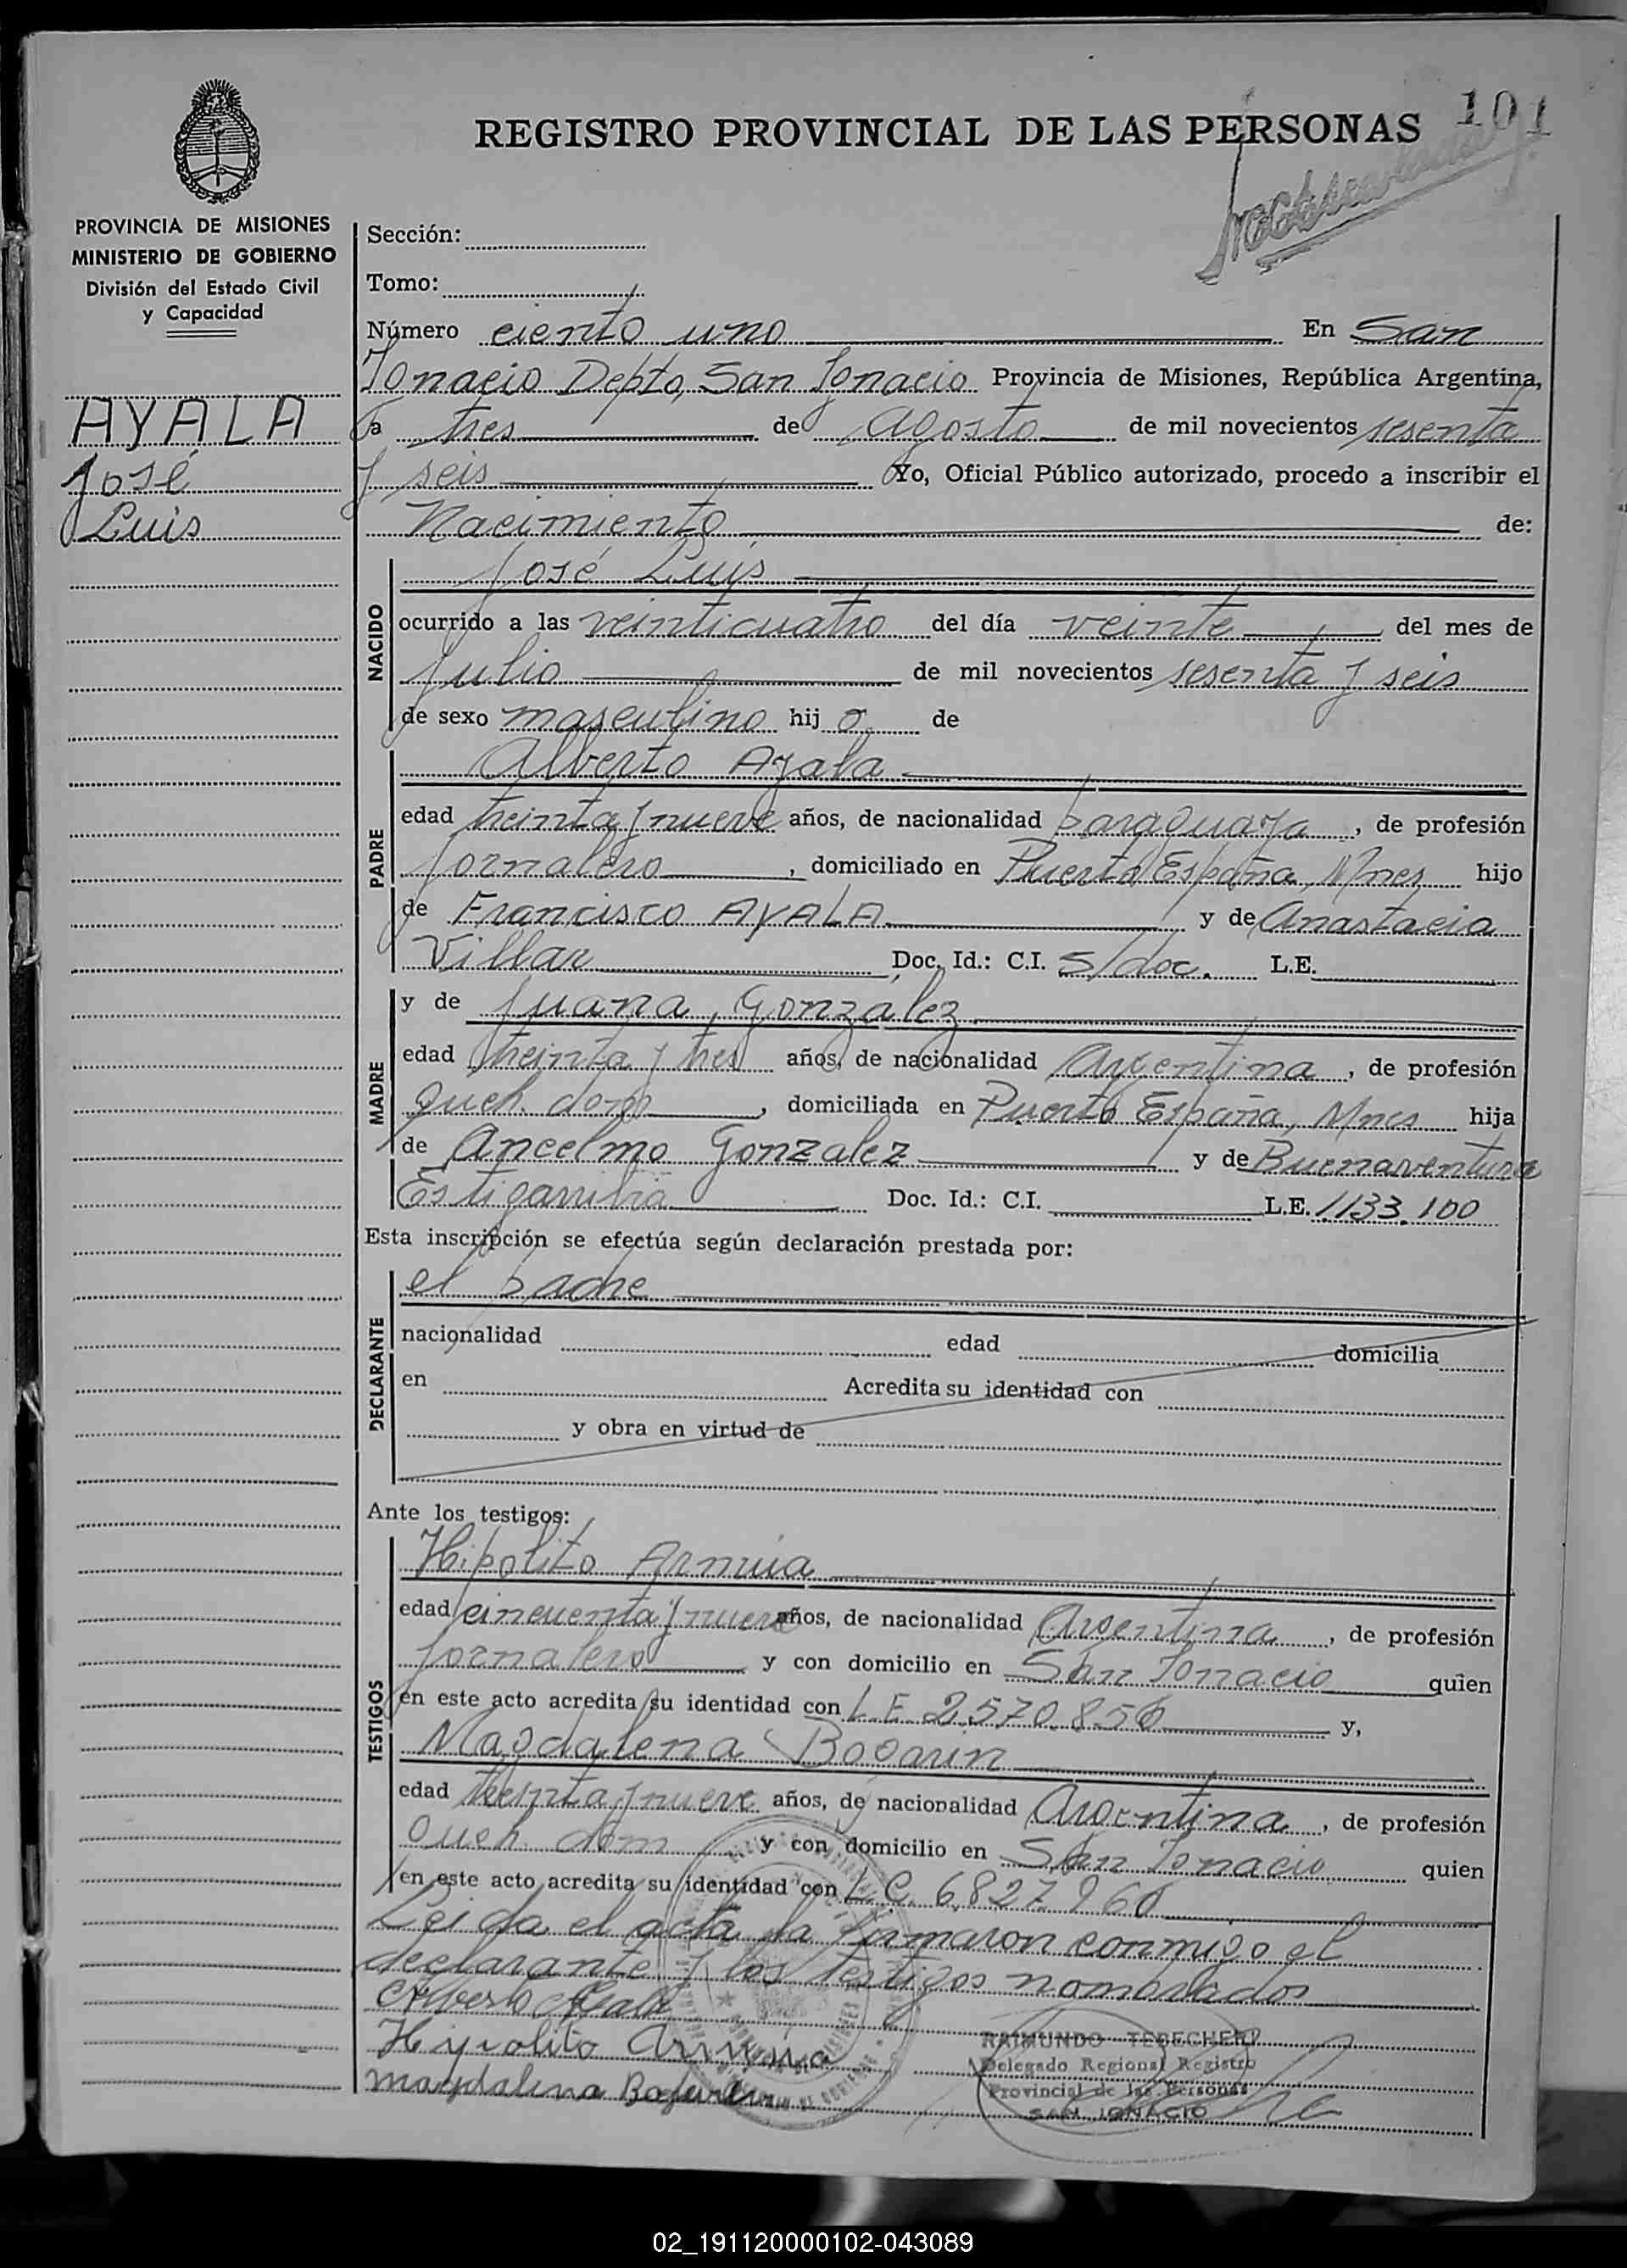 REGISTRO PROVINCIAL DE LAS PERSONAS 101
PROVINCIA DE MISIONES
MINISTERIO DE GOBIERNO
División del Estado Civil
y Capacidad
AYALA
José
Luis
Sección:
Tomo:
Número ciento uno En San
Ignacio Depto, San Ignacio Provincia de Misiones, República Argentina,
a tres de Agosto de mil novecientos sesenta
y seis Yo, Oficial Público autorizado, procedo a inscribir el
Nacimiento de:
NACIDO
José Luis
ocurrido a las veinticuatro del día veinte del mes de
Julio de mil novecientos sesenta y seis
de sexo masculino hijo de
PADRE
Alberto Ayala
edad treinta y nueve años, de nacionalidad paraguaya, de profesión
Jornalero, domiciliado en Puerto España, Mnes hijo
de Francisco AYALA y de Anastacia
Villar Doc. Id.: C.I. S/doc. L.E.
MADRE
y de Juana Gonzalez
edad treinta y tres años, de nacionalidad Argentina, de profesión
Queh. dom, domiciliada en Puerto España, Mnes hija
de Ancelmo Gonzalez y de Buenaventura
Estigarribia Doc. Id.: C.I. L.E. 1133.100
Esta inscripción se efectúa según declaración prestada por:
DECLARANTE
el padre
nacionalidad edad domicilia
en Acredita su identidad con
y obra en virtud de
Ante los testigos:
TESTIGOS
Hipolito Armúa
edad cincuenta y nueve años, de nacionalidad Argentina, de profesión
Jornalero y con domicilio en San Ignacio quien
en este acto acredita su identidad con L.E. 2.570.856 y,
Magdalena Bogarin
edad treinta y nueve años, de nacionalidad Argentina, de profesión
Queh. dom y con domicilio en San Ignacio quien
en este acto acredita su identidad con L.C. 6.827.960
Leida el acta la firmaron conmigo el
declarante y los testigos nombrados
Alberto Ayala
Hipolito Armúa
Magdalena Bogarin
RAIMUNDO TEBECHERI
Delegado Regional Registro
Provincial de las Personas
SAN IGNACIO
02_191120000102-043089